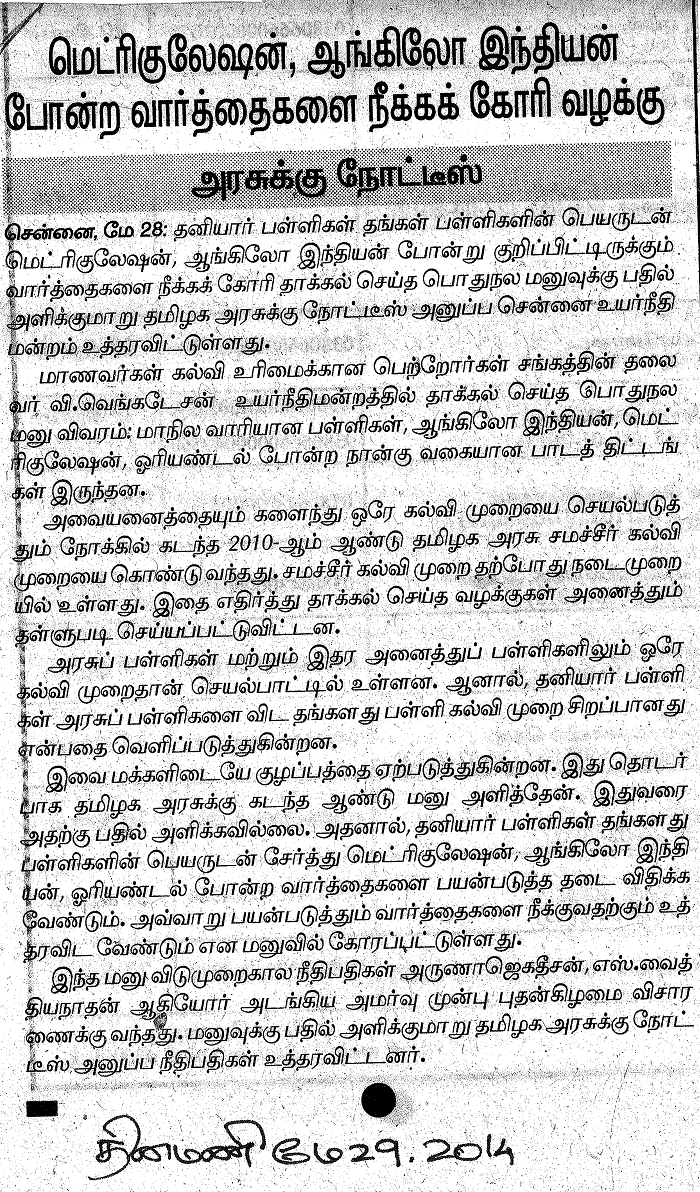 மெட்ரிகுலேஷன், ஆங்கிலோ இந்தியன்
போன்ற வார்த்தைகளை நீக்கக் கோரி வழக்கு
அரசுக்கு நோட்டீஸ்
சென்னை, மே 28: தனியார் பள்ளிகள் தங்கள் பள்ளிகளின் பெயருடன்
மெட்ரிகுலேஷன், ஆங்கிலோ இந்தியன் போன்று குறிப்பிட்டிருக்கும்
வார்த்தைகளை நீக்கக் கோரி தாக்கல் செய்த பொதுநல மனுவுக்கு பதில்
அளிக்குமாறு தமிழக அரசுக்கு நோட்டீஸ் அனுப்ப சென்னை உயர்நீதி
மன்றம் உத்தரவிட்டுள்ளது.
மாணவர்கள் கல்வி உரிமைக்கான பெற்றோர்கள் சங்கத்தின் தலை
வர் வி.வெங்கடேசன் உயர்நீதிமன்றத்தில் தாக்கல் செய்த பொதுநல
மனு விவரம்: மாநில வாரியான பள்ளிகள், ஆங்கிலோ இந்தியன், மெட்
ரிகுலேஷன், ஓரியண்டல் போன்ற நான்கு வகையான பாடத் திட்டங்
கள் இருந்தன.
அவையனைத்தையும் களைந்து ஒரே கல்வி முறையை செயல்படுத்
தும் நோக்கில் கடந்த 2010-ஆம் ஆண்டு தமிழக அரசு சமச்சீர் கல்வி
முறையை கொண்டு வந்தது. சமச்சீர் கல்வி முறை தற்போது நடைமுறை
யில் உள்ளது. இதை எதிர்த்து தாக்கல் செய்த வழக்குகள் அனைத்தும்
தள்ளுபடி செய்யப்பட்டுவிட்டன.
அரசுப் பள்ளிகள் மற்றும் இதர அனைத்துப் பள்ளிகளிலும் ஒரே
கல்வி முறைதான் செயல்பாட்டில் உள்ளன. ஆனால், தனியார் பள்ளி
கள் அரசுப் பள்ளிகளை விட தங்களது பள்ளி கல்வி முறை சிறப்பானது
என்பதை வெளிப்படுத்துகின்றன.
இவை மக்களிடையே குழப்பத்தை ஏற்படுத்துகின்றன. இது தொடர்
பாக தமிழக அரசுக்கு கடந்த ஆண்டு மனு அளித்தேன். இதுவரை
அதற்கு பதில் அளிக்கவில்லை. அதனால், தனியார் பள்ளிகள் தங்களது
பள்ளிகளின் பெயருடன் சேர்த்து மெட்ரிகுலேஷன், ஆங்கிலோ இந்தி
யன், ஓரியண்டல் போன்ற வார்த்தைகளை பயன்படுத்த தடை விதிக்க
வேண்டும். அவ்வாறு பயன்படுத்தும் வார்த்தைகளை நீக்குவதற்கும் உத்
தரவிட வேண்டும் என மனுவில் கோரப்பட்டுள்ளது.
இந்த மனு விடுமுறைகால நீதிபதிகள் அருணாஜெகதீசன், எஸ்.வைத்
தியநாதன் ஆகியோர் அடங்கிய அமர்வு முன்பு புதன்கிழமை விசார
ணைக்கு வந்தது. மனுவுக்கு பதில் அளிக்குமாறு தமிழக அரசுக்கு நோட்
டீஸ் அனுப்ப நீதிபதிகள் உத்தரவிட்டனர்.
தினமணி மே 29. 2014